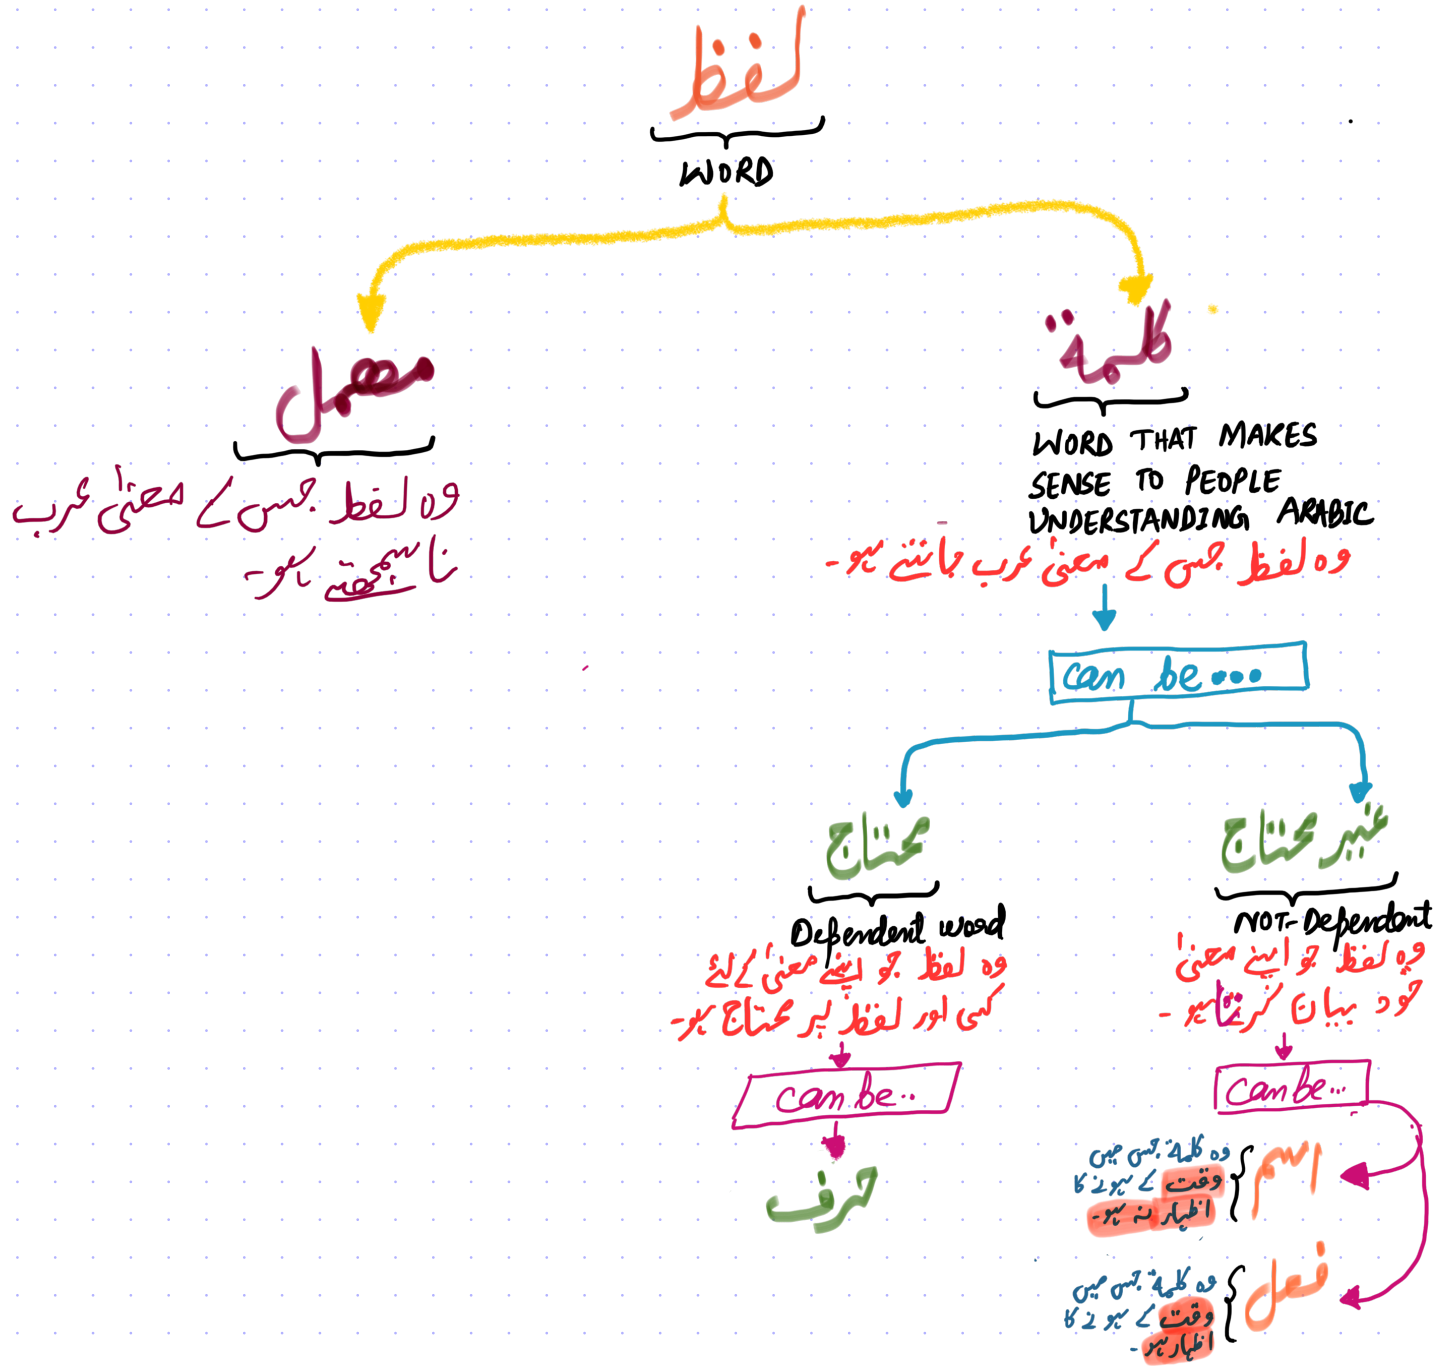 لفظ
WORD
مهمل
وہ لفظ جس کے معنیٰ عرب
نا سمجھتے ہو-
كلمة
WORD THAT MAKES
SENSE TO PEOPLE
UNDERSTANDING ARABIC
وہ لفظ جس کے معنیٰ عرب جانتے ہو-
can be...
محتاج
Dependent word
وہ لفظ جو اپنے معنیٰ کے لئے
کسی اور لفظ پر محتاج ہو-
can be..
حرف
غیر محتاج
NOT-Dependent
وہ لفظ جو اپنے معنیٰ
خود بیان کرتا ہو-
can be...
اسم
وہ کلمۃ جس میں
وقت کے ہونے کا
اظہار نہ ہو-
فعل
وہ کلمۃ جس میں
وقت کے ہونے کا
اظہار ہو-